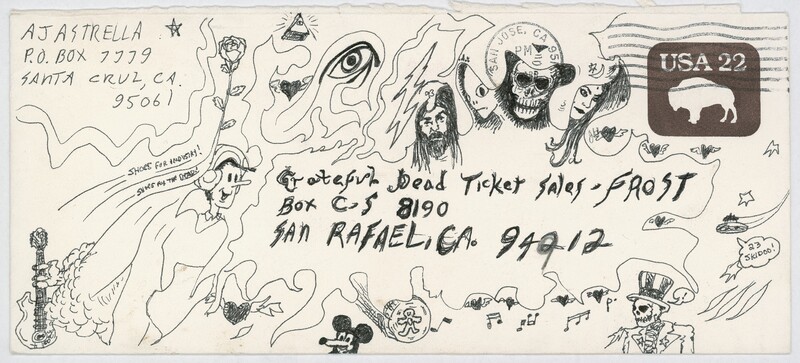 AJ ASTRELLA
P.O. BOX 7779
SANTA CRUZ, CA.
95061
SAN JOSE, CA 95
PM
USA 22
SHOES FOR INDUSTRY!
SHOES FOR THE DEAD!
Grateful Dead Ticket Sales - FROST
Box C-S 8190
SAN RAFAEL, CA. 94212
23
SKIDOO!